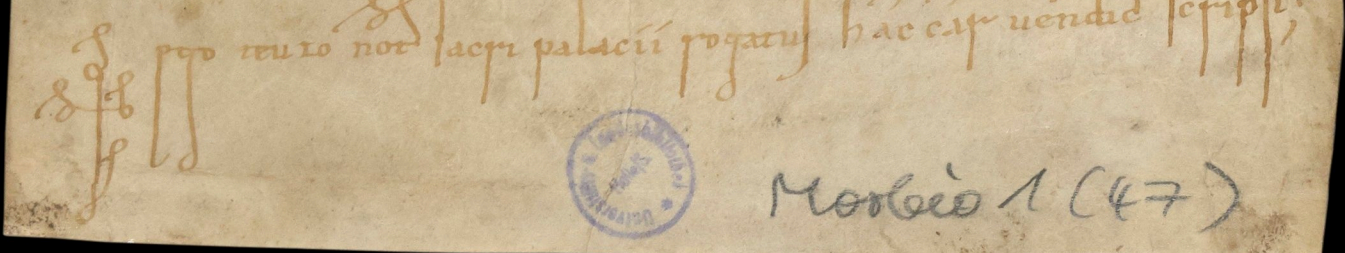 ego not sacri palacii rogatus hac car vendic scripsi;
Morbio 1 (47)